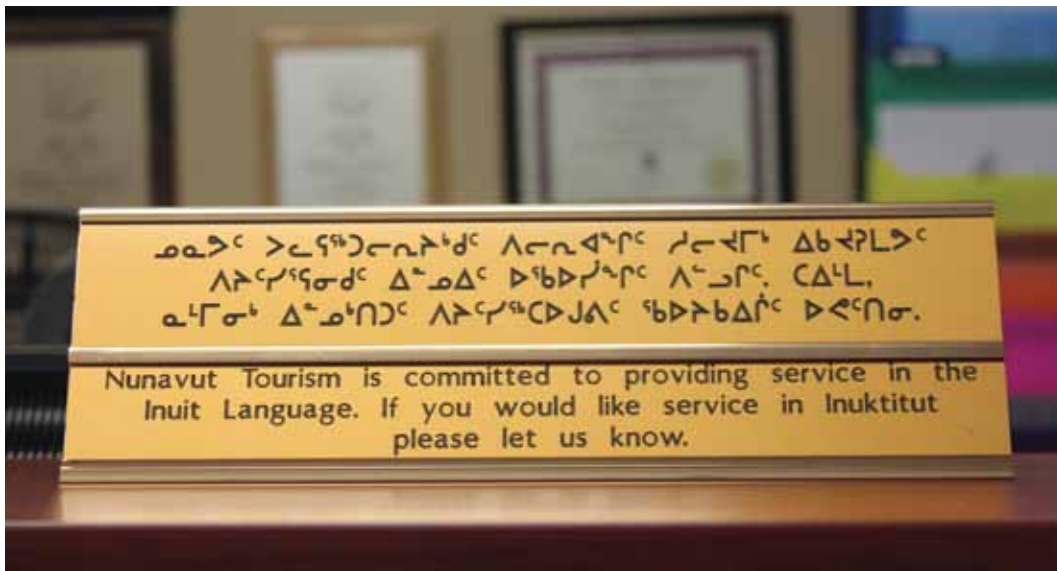 ᓄᓇᕗᑦ ᐳᓚᕋᖅᑐᓕᕆᔨᒃᑯᑦ ᐱᓕᕆᐊᖏᑦ ᓱᓕᔪᒥᒃ ᐃᑲᔪᕈᒪᕗᑦ
ᐱᔨᑦᓯᕐᕋᓂᑯᑦ ᐃᓐᓄᐃᑦ ᐅᖃᐅᓰᖏᑦ ᐱᓪᓗᒋᑦ. ᑕᐃᒻᒪ,
ᓇᒻᒥᓂᒃ ᐃᓐᓄᒃᑎᑐᑦ ᐱᔨᑦᓯᖅᑕᐅᒍᕕᑦ ᖃᐅᔨᑲᐃᒌᑦ ᐅᕙᑦᑎᓂ.
Nunavut Tourism is committed to providing service in the
Inuit Language. If you would like service in Inuktitut
please let us know.